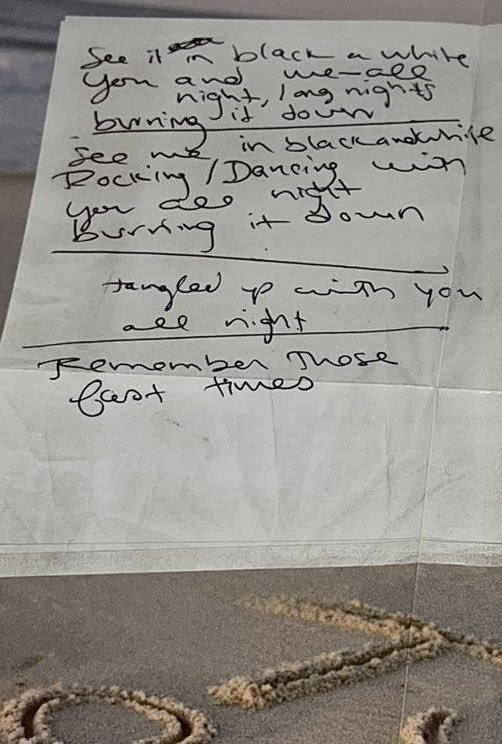 See it in black a white
You and me-all
night, long nights
burning it down
See me in black and white
Rocking/Dancing with
you all night
burning it down
tangled up with you
all night
Remember Those
fast times